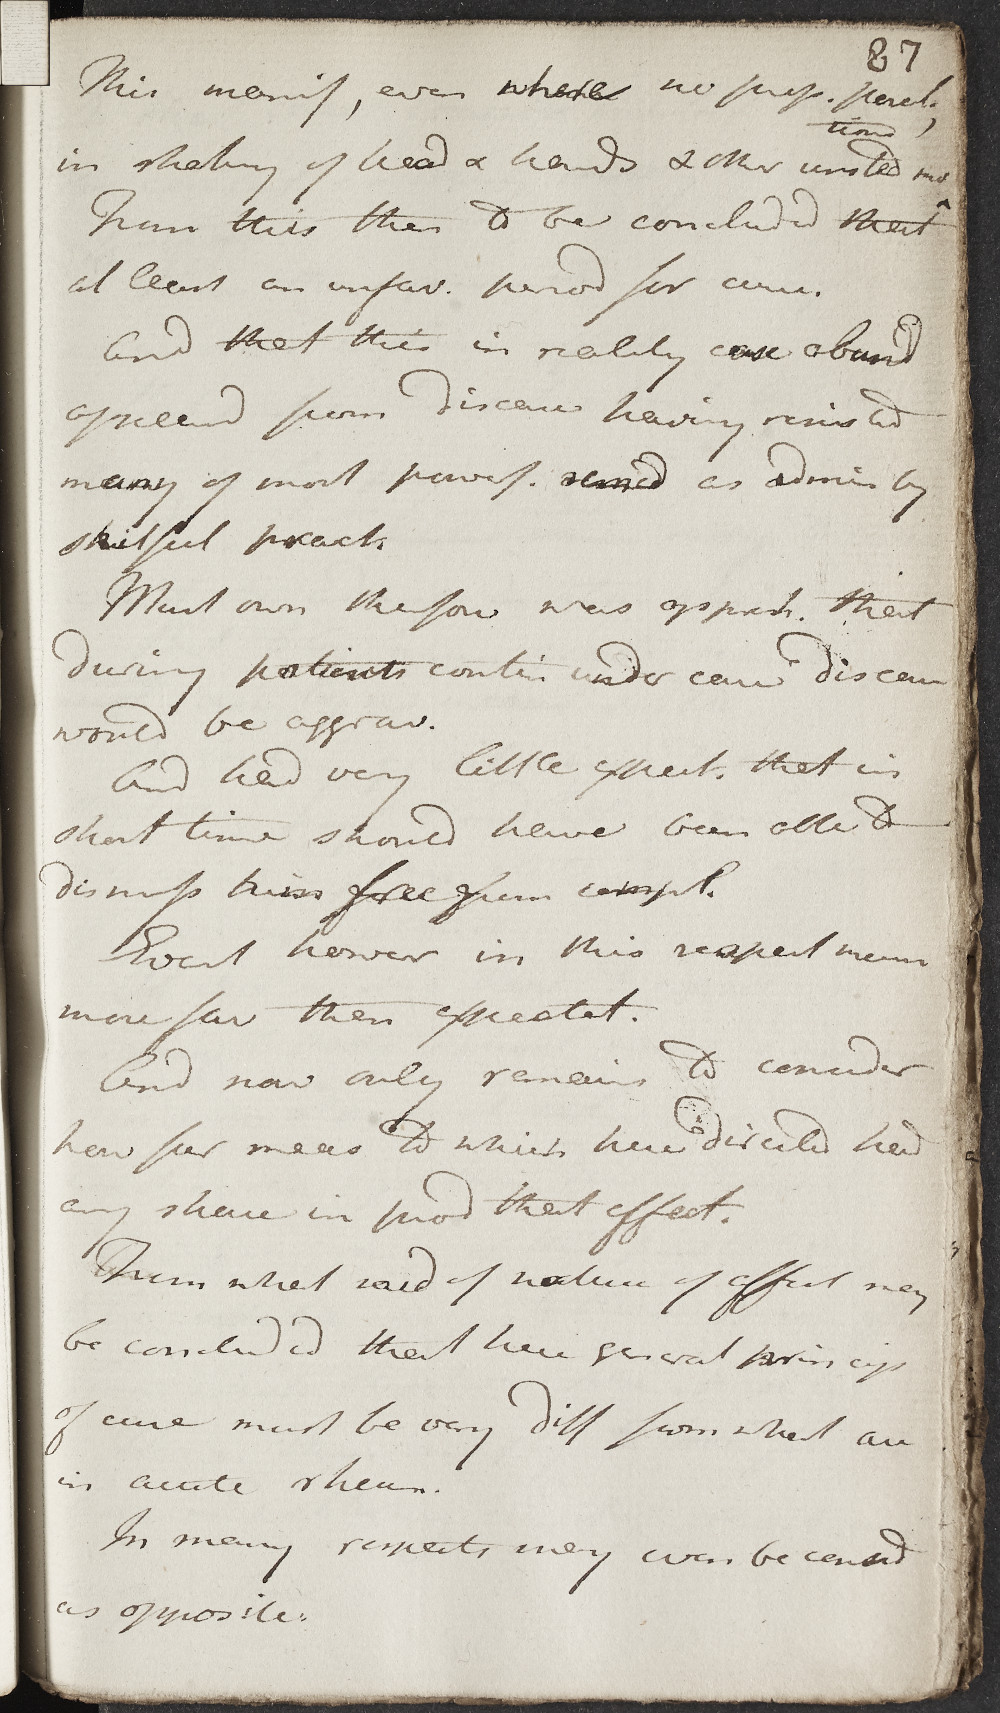 87
This manif, even where no prop. paral;
in shaking of head & hands & other unsted mo
tions
From this then to be concluded that
at least an unfav. period for cure.
And that this in reality case abund
appeard from disease having resisted
many of most powerf. remed as admin by
skilful pract.
Must own therefore was appreh. that
during patients contin under care disease
would be aggrav.
And had very little expect. that in
short time should have been able to
dismiss him free from compl.
Event however in this respect
more fav then expectat.
And now only remains to consider
how far meas to which have directed had
any share in prod that effect.
From what said of nature of affect may
be concluded that here general princip
of cure must be very diff from what are
in acute rheum.
In many respects may even be consd
as opposite.